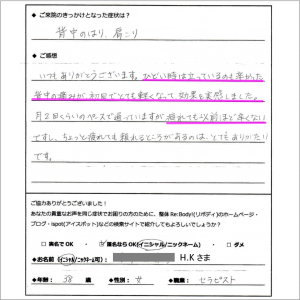 ◆ ご来院のきっかけとなった症状は？
背中のはり、肩こり
◆ ご感想
いつもありがとうございます。ひどい時は立っているのも辛かった
背中の痛みが、初回でとても軽くなって効果を実感しました。
月2回くらいのペースで通っていますが 疲れても以前ほど辛くない
ですし、ちょっと疲れても頼れるところがあるのは、とてもありがたい
です。
ご協力ありがとうございました！
あなたの貴重なお声を同じ症状でお困りの方のために、整体 Re:Body!(リボディ)のホームページ・
ブログ・ispot(アイスポット)などの検索サイトで紹介してもよろしいでしょうか？
・ 実名でOK ・ 匿名ならOK(イニシャル/ニックネーム) ・ ダメ
◆お名前(イニシャル/ニックネーム可)： H.K さま
◆年齢： 38 歳 ◆性別： 女 ◆職業： セラピスト